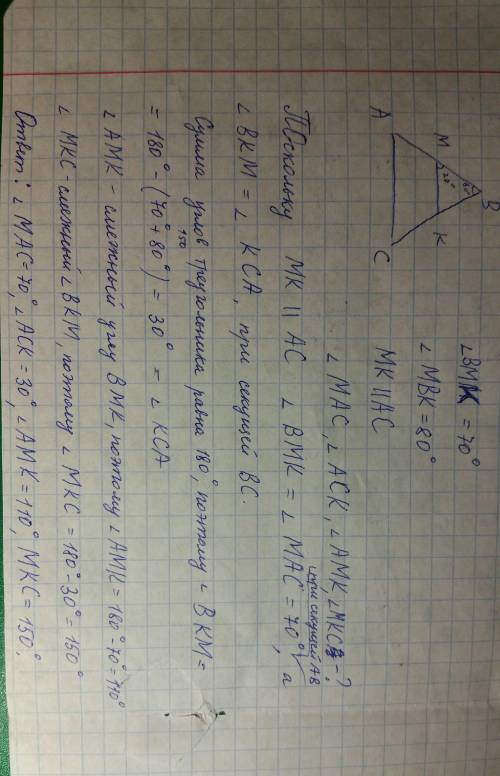 B
80°
M
70°
K
A
C
∠BMK = 70°
∠MBK = 80°
MK || AC
∠MAC, ∠ACK, ∠AMK, ∠MKC - ?
при секущей AB
Поскольку MK || AC ∠BMK = ∠MAC = 70°, а
∠BKM = ∠KCA, при секущей BC.
Сумма углов треугольника равна 180°, поэтому ∠BKM =
= 180° - (70° + 80°) = 30° = ∠KCA
150
∠AMK - смежный углу BMK, поэтому ∠AMK = 180° - 70° = 110°
∠MKC - смежный ∠BKM, поэтому ∠MKC = 180° - 30° = 150°
Ответ: ∠MAC = 70°, ∠ACK = 30°, ∠AMK = 110°, MKC = 150°.